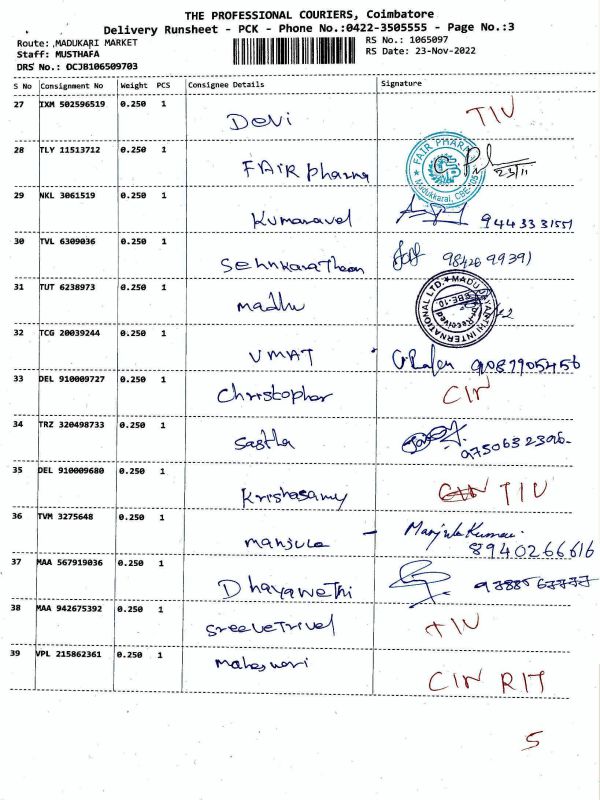 THE PROFESSIONAL COURIERS, Coimbatore
Delivery Runsheet - PCK - Phone No.:0422-3505555 - Page No.:3
Route: ,MADUKARI MARKET
RS No.: 1065097
Staff: MUSTHAFA
RS Date: 23-Nov-2022
DRS No.: OCJB106509703
S No Consignment No Weight PCS Consignee Details Signature
27 IXM 502596519 0.250 1 Devi TIU
28 TLY 11513712 0.250 1 FAIR pharma FAIR PHARM Madukkarai, CBE-105 23/11
29 NKL 3061519 0.250 1 Kumaravel 9443331551
30 TVL 6309036 0.250 1
31 TUT 6238973 0.250 1 madhu INTERNATIONAL LTD. Received
32 TCG 20039244 0.250 1 UMAT 9087905456
33 DEL 910009727 0.250 1 Christopher CIN
34 TRZ 320498733 0.250 1 Sastha 9750632396
35 DEL 910009680 0.250 1 Krishasamy TIU
36 TVM 3275648 0.250 1 manjula - Manjula Kumar 8940266616
37 MAA 567919036 0.250 1 Dhayawethi
38 MAA 942675392 0.250 1 Sreevetrivel TIU
39 VPL 215862361 0.250 1 maheswari CIN RIT
5